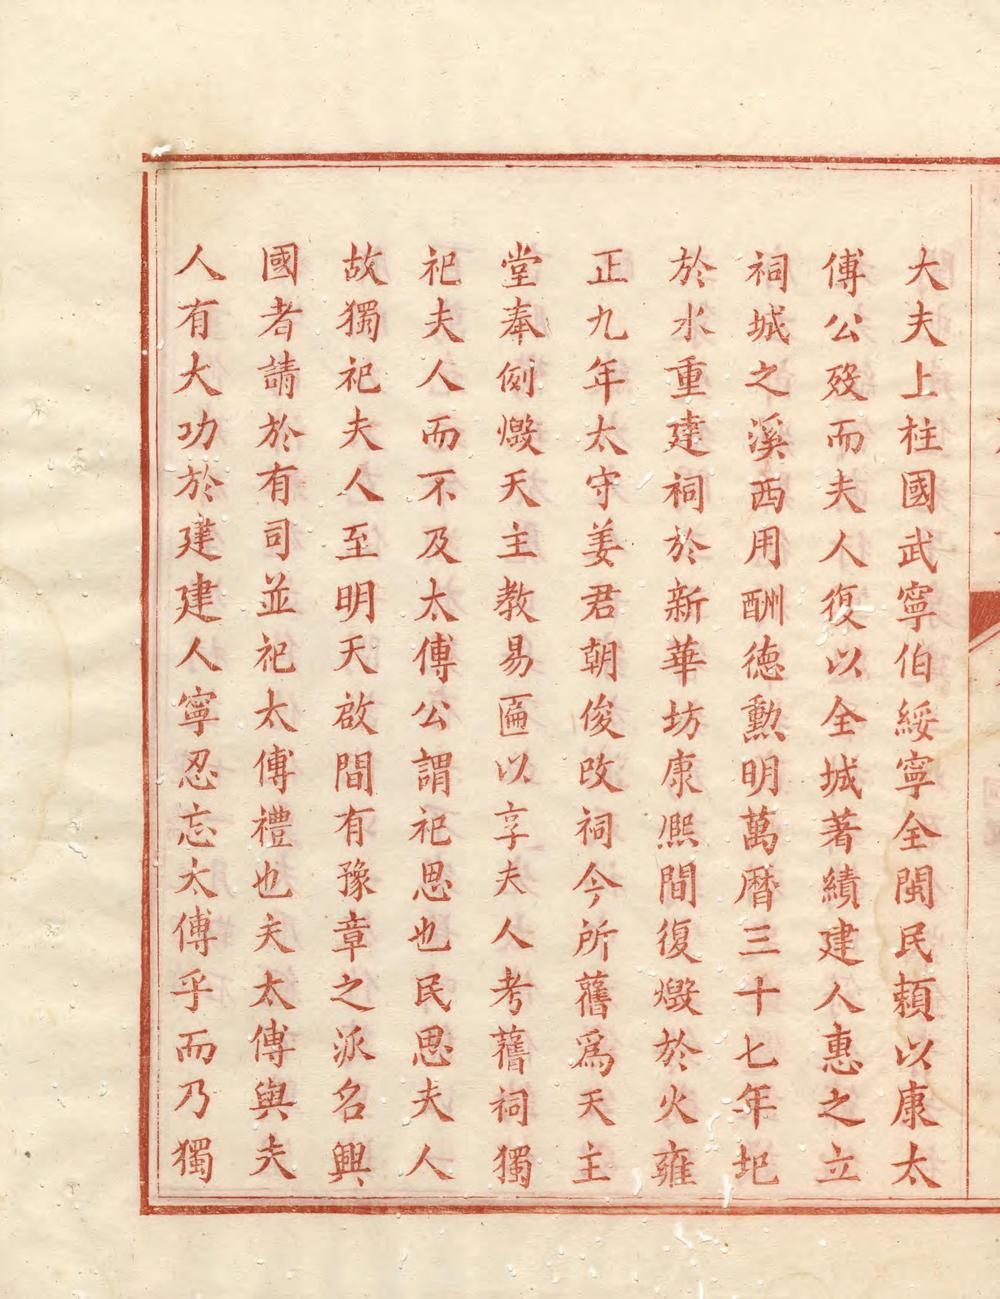 大夫上柱國武寧伯綏寧全閩民頼以康太
傅公歿而夫人復以全城著績建人惠之立
祠城之溪西用酬德勲明萬曆三十七年圯
於水重建祠於新華坊康熈間復燬於火雍
正九年太守姜君朝俊改祠今所舊爲天主
堂奉例燬天主教易匾以享夫人考舊祠獨
祀夫人而不及太傅公謂祀思也民思夫人
故獨祀夫人至明天啟間有豫章之派名興
國者請於有司並祀太傅禮也夫太傅與夫
人有大功於建建人寧忍忘太傅乎而乃獨